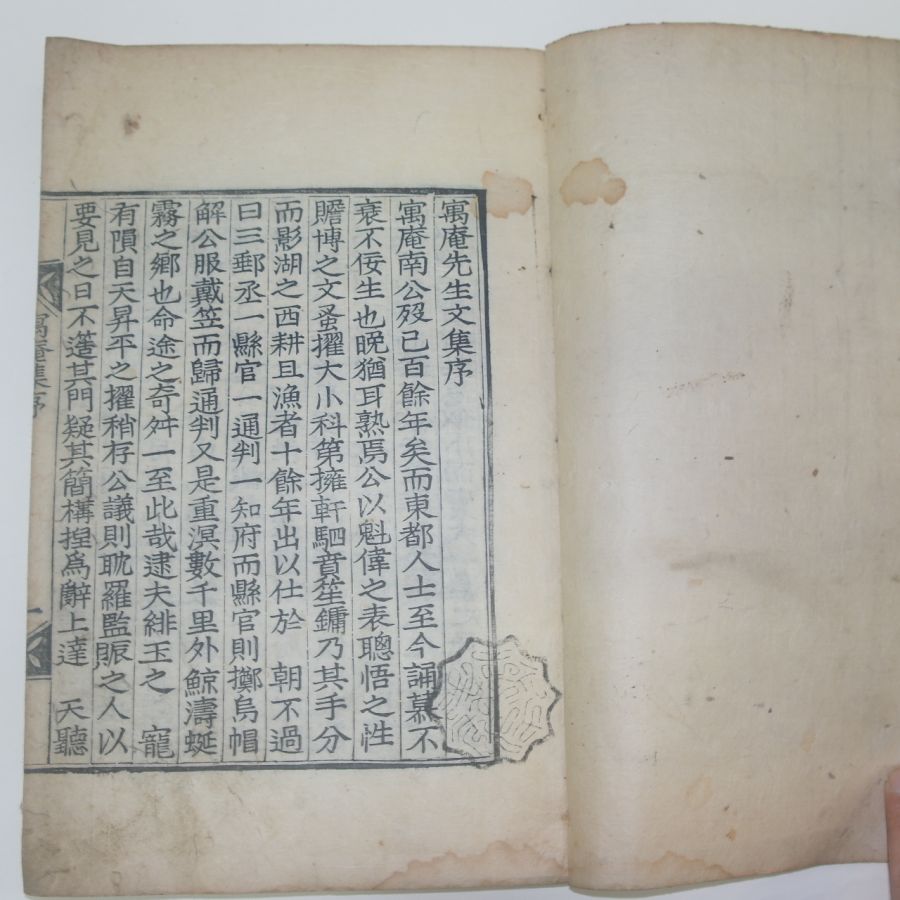 寓庵先生文集序
寓庵南公歿已百餘年矣而東都人士至今誦慕不
衰不佞生也晩猶耳熟焉公以魁偉之表聰悟之性
贍博之文蚤擢大小科第擁軒駟音笙鏞乃其手分
而影湖之西耕且漁者十餘年出以仕於 朝不過
曰三郵丞一縣官一通判一知府而縣官則擲烏帽
解公服戴笠而歸通判又是重溟數千里外鯨濤蜒
霧之鄕也命途之奇舛一至此哉逮夫緋玉之 寵
有隕自天昇平之擢稍存公議則耽羅監賑之人以
要見之日不簉其門疑其簡構揑爲辭上達 天聽
寓庵集序
一